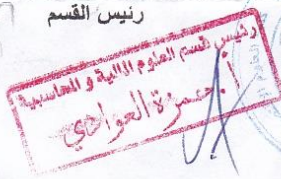 رئيس القسم
رئيس قسم العلوم المالية و المحاسبية
حمزة العوادي